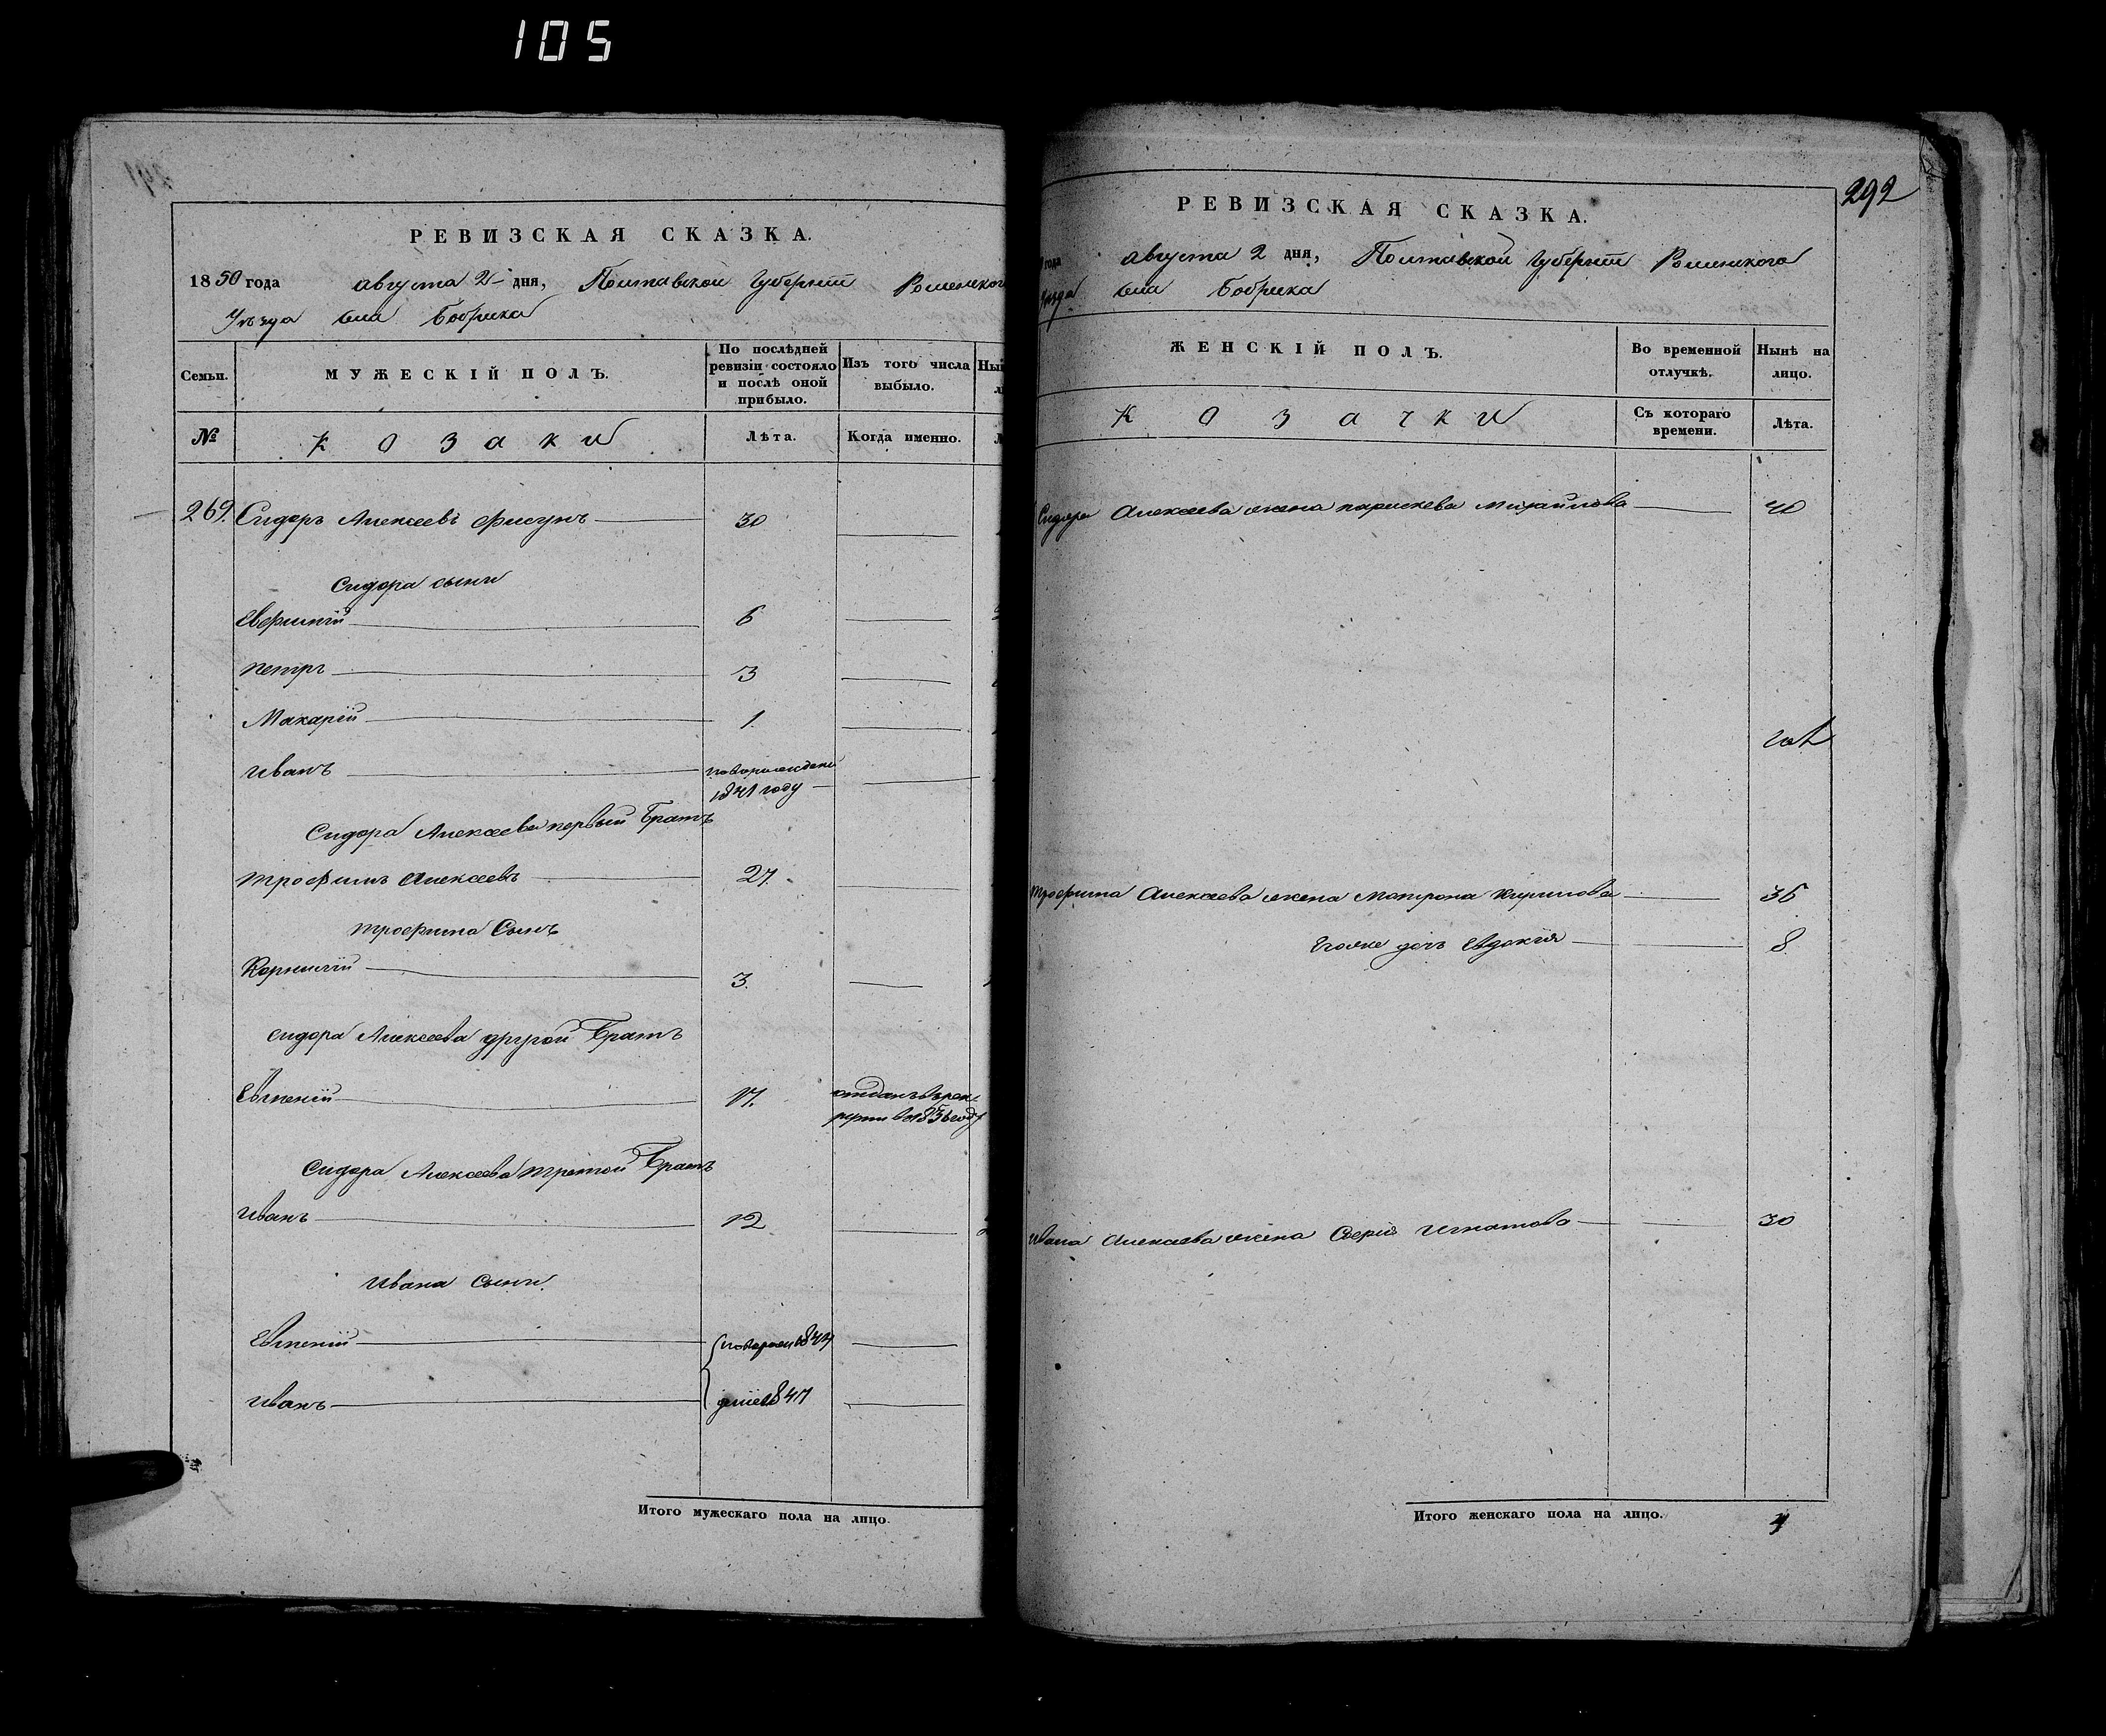 105
РЕВИЗСКАЯ СКАЗКА.
1850 года августа 2 дня, Полтавской Губерніи Роменского
Уѣзда села Бобрика
Семьи.
МУЖЕСКІЙ ПОЛЪ.
По послѣдней ревизіи состояло и послѣ оной прибыло.
Изъ того числа выбыло.
№
Козаки
Лѣта.
Когда именно.
269. Сидоръ Алексеевъ Фисунъ 30
Сидора сыни
6
Петръ 3
Макарій 1.
Иванъ новорожденъ
1841 году
Сидора Алексеева первый Братъ
Трофимъ Алексеевъ 27.
Трофима Сынъ
Корнилій 3.
Сидора Алексеева другой Братъ
Евгеній 17. отданъ в рек
руты в 1836 году
Сидора Алексеева третой Братъ
Иванъ 12
Ивана Сыни.
Евгеній
Иванъ 1847
Итого мужескаго пола на лицо.
292
РЕВИЗСКАЯ СКАЗКА.
года августа 2 дня, Полтавской Губерніи Роменского
Уѣзда села Бобрика
ЖЕНСКІЙ ПОЛЪ.
Во временной отлучкѣ.
Нынѣ на лицо.
Козачки
Съ котораго времени.
Лѣта.
Сидора Алексеева жена Параскева Михайлова 40
Трофима Алексеева жена Матрона Кирилова 35
Егоже дочь Евдокія 8.
Ивана Алексеева жена Игнатова 30
Итого женскаго пола на лицо. 4